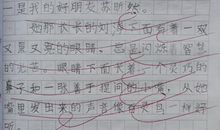 一是我的好朋友苏昕然。
她那长长的刘海下面有着一双
又黑又亮的眼睛。总是闪烁着智慧
的光芒。眼睛下面长着一个灵巧的
鼻子和一张善于提问的小嘴，从她
嘴里发出来的声音像百灵鸟一样好
听。